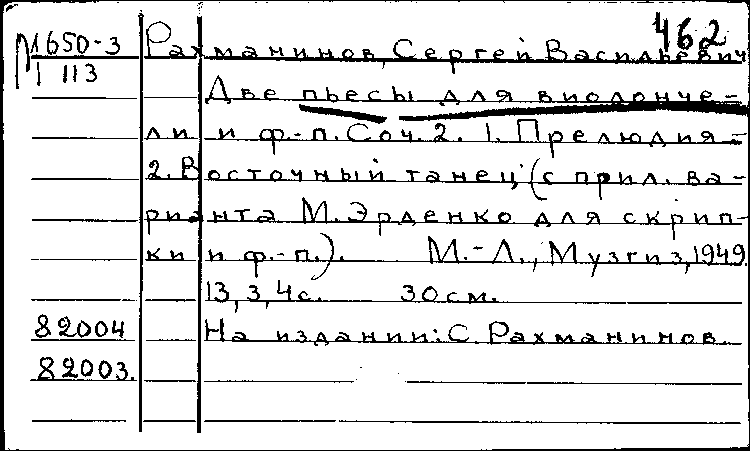 462
М1650-3 Рахманинов, Сергей Васильевич
113
Две пьесы для виолонче-
ли и ф.-п. Соч. 2. 1. Прелюдия-
2. Восточный танец (с прил. ва-
рианта М. Эрденко для скрип-
ки и ф.-п.). М.-Л., Музгиз, 1949.
13, 3, 4 с. 30 см.
82004 На издании: С. Рахманинов.
82003.